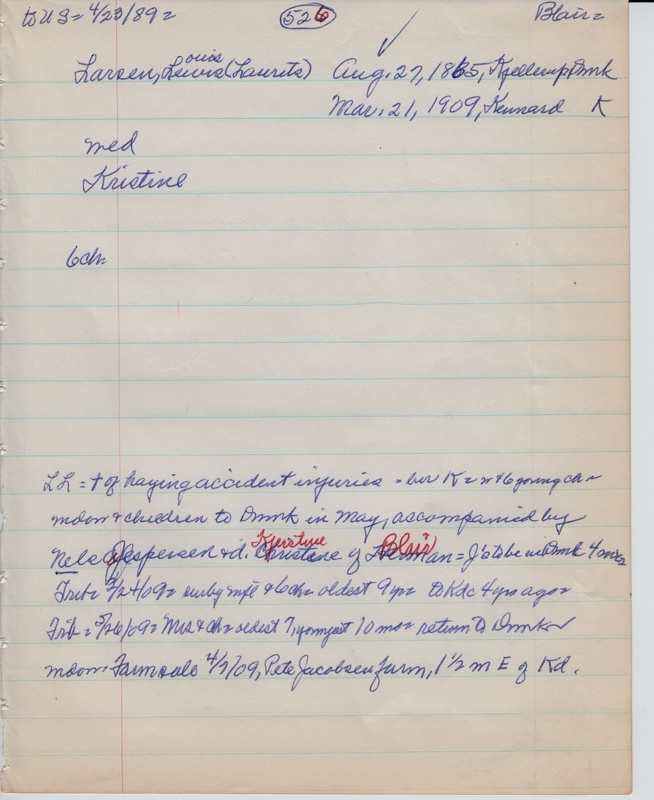 to US = 4/23/89 =
526
Blair =
Larsen, Lewis (Laurits) Aug. 27, 1865, Kjellerup Dmk
ouis
Mar. 21, 1909, Kennard K
med
Kristine
6ch =
LL = † of haying accident injuries = bur K = w + 6 young ch =
mdow + children to Dmk in May, accompanied by
Kjerstine Blair
Nels Jespersen + d. Christene of Herman = J's to be in Dmk 4 mos
Trib = 3/24/09 = surby wife + 6ch = oldest 9 yr = to Kdc 4 yrs ago =
Trib = 5/26/09 = Mrs + ch = oldest 7, youngest 10 mo = return to Dmk =
mdow = Farm sale 4/3/09, Pete Jacobsen farm, 1 1/2 m E of Kd.